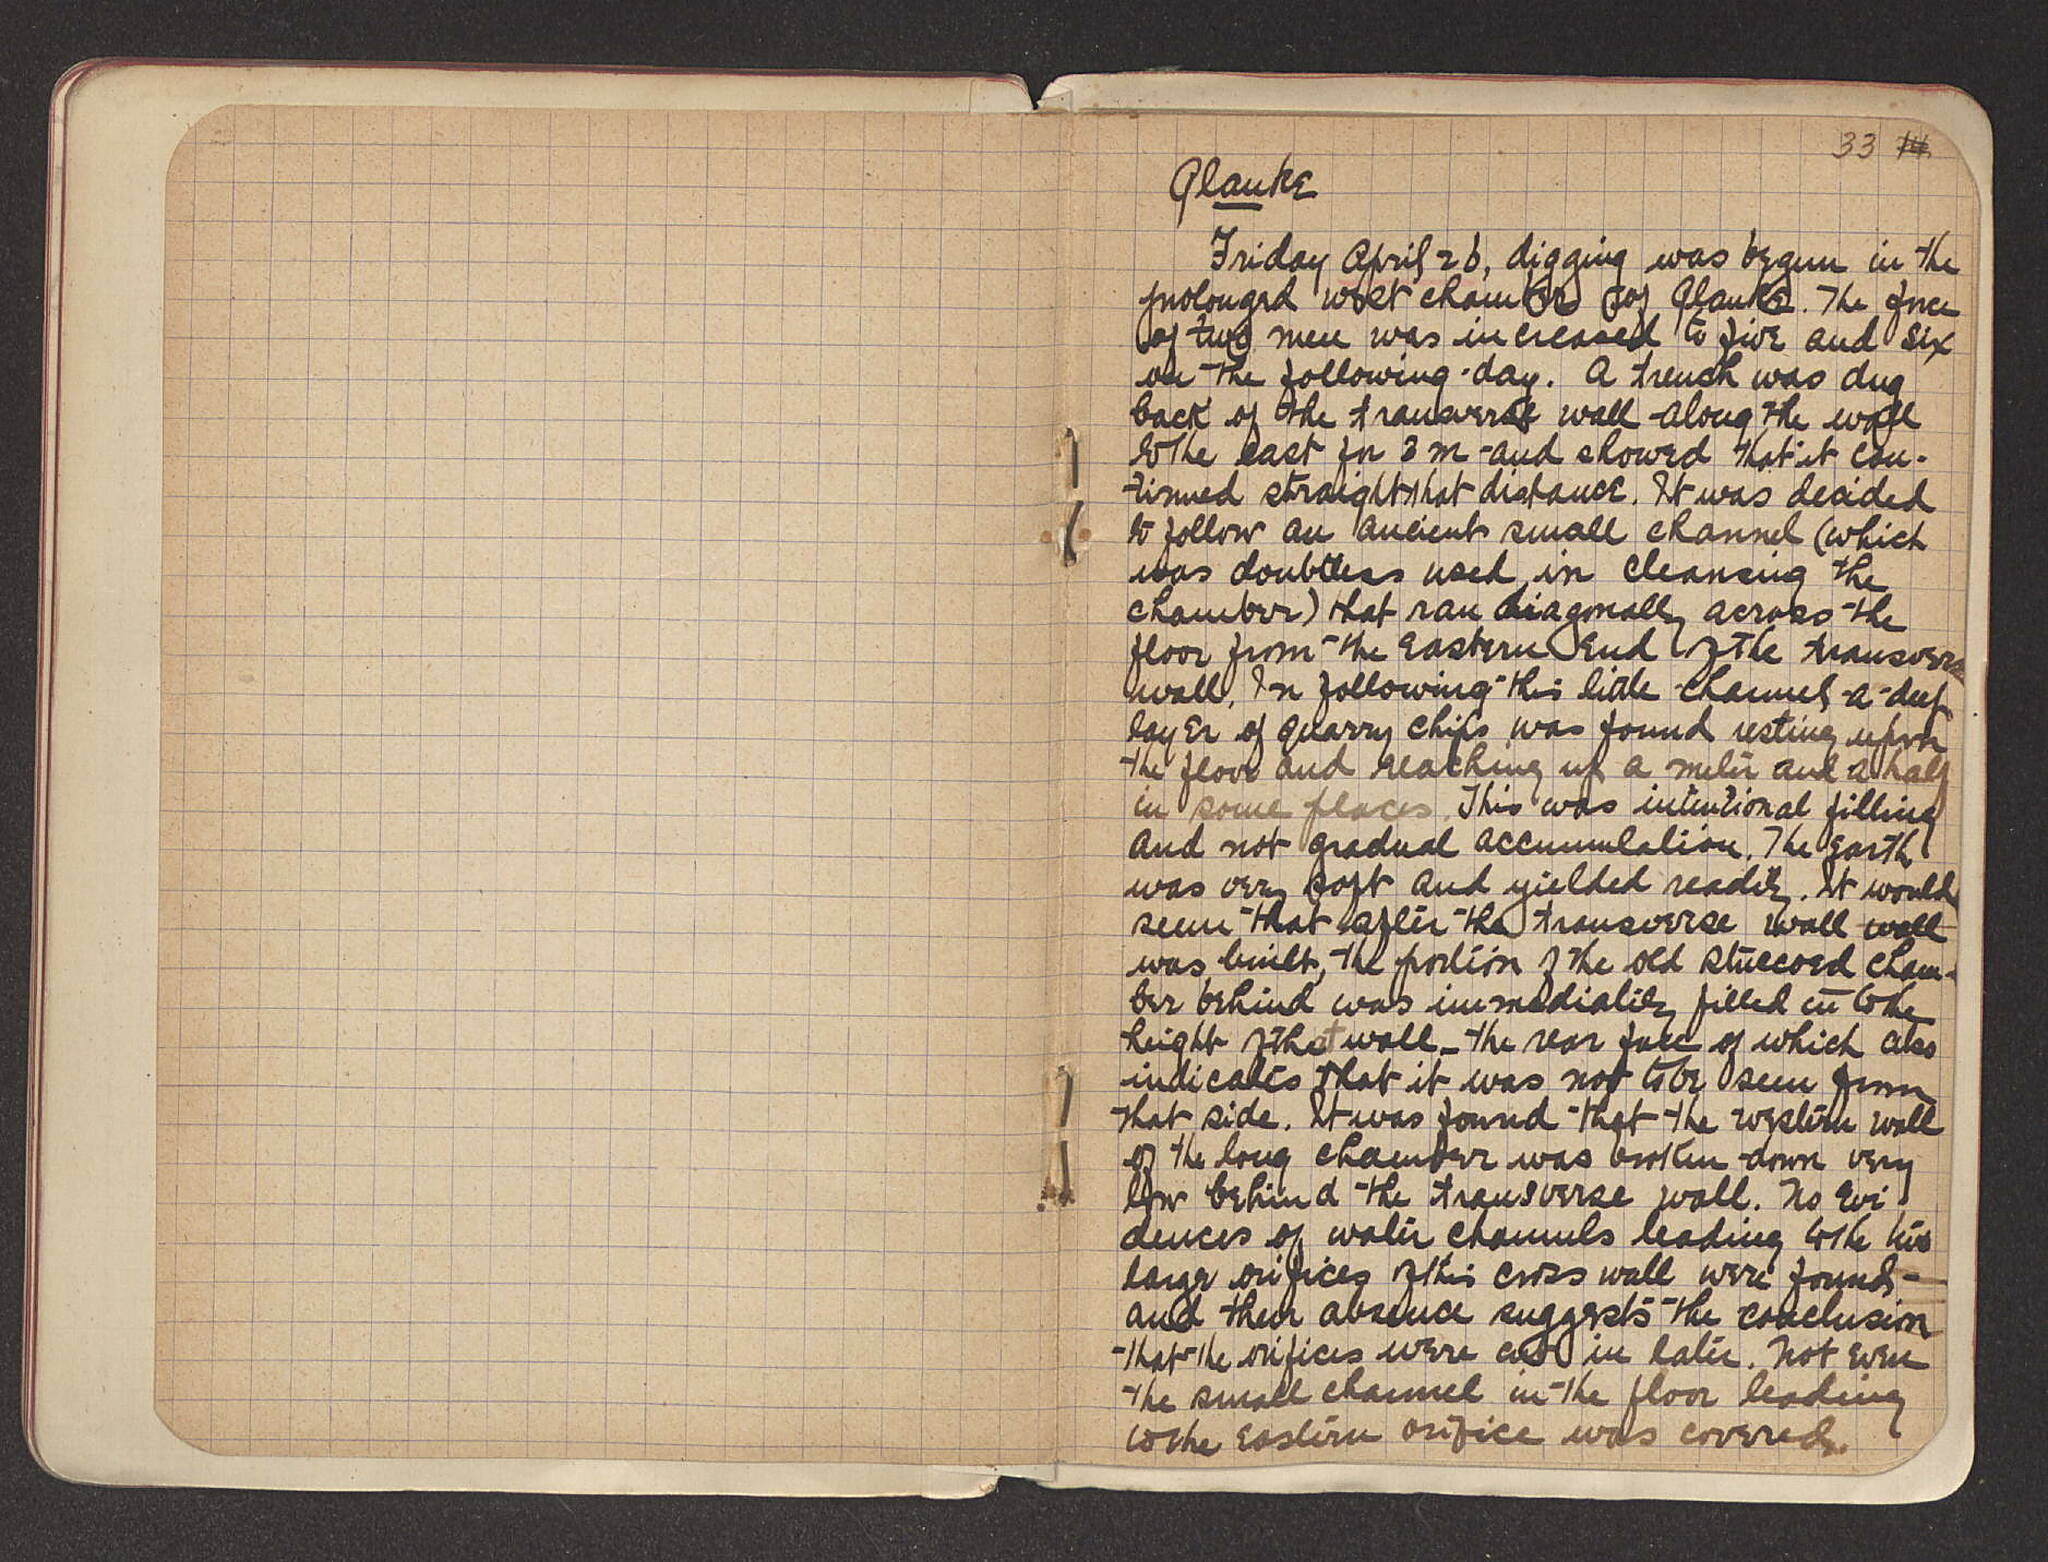 33 14
Glauke
Friday April 26, digging was begun in the
prolonged west chamber of Glauke. The force
of two men was increased to five and six
on the following day. A trench was dug
back of the transverse wall along the wall
to the east for 3 m and showed that it con-
tinued straight that distance. It was decided
to follow an ancient small channel (which
was doubtless used in cleansing the
chamber) that ran diagonally across the
floor from the eastern end of the transverse
wall. In following this little channel a deep
layer of quarry chips was found resting upon
the floor and reaching up a meter and a half
in some places. This was intentional filling
and not gradual accumulation. The earth
was very soft and yielded readily. It would
seem that after the transverse wall wall
was built, the portion of the old stuccoed cham-
ber behind was immediately filled in to the
height of that wall - the rear face of which also
indicates that it was not to be seen from
that side. It was found that the western wall
of the long chamber was broken down very
low behind the transverse wall. No evi
dences of water channels leading to the two
large orifices of this cross wall were found -
and their absence suggests the conclusion
that the orifices were cut in later. Not even
the small channel in the floor leading
to the eastern orifice was covered.